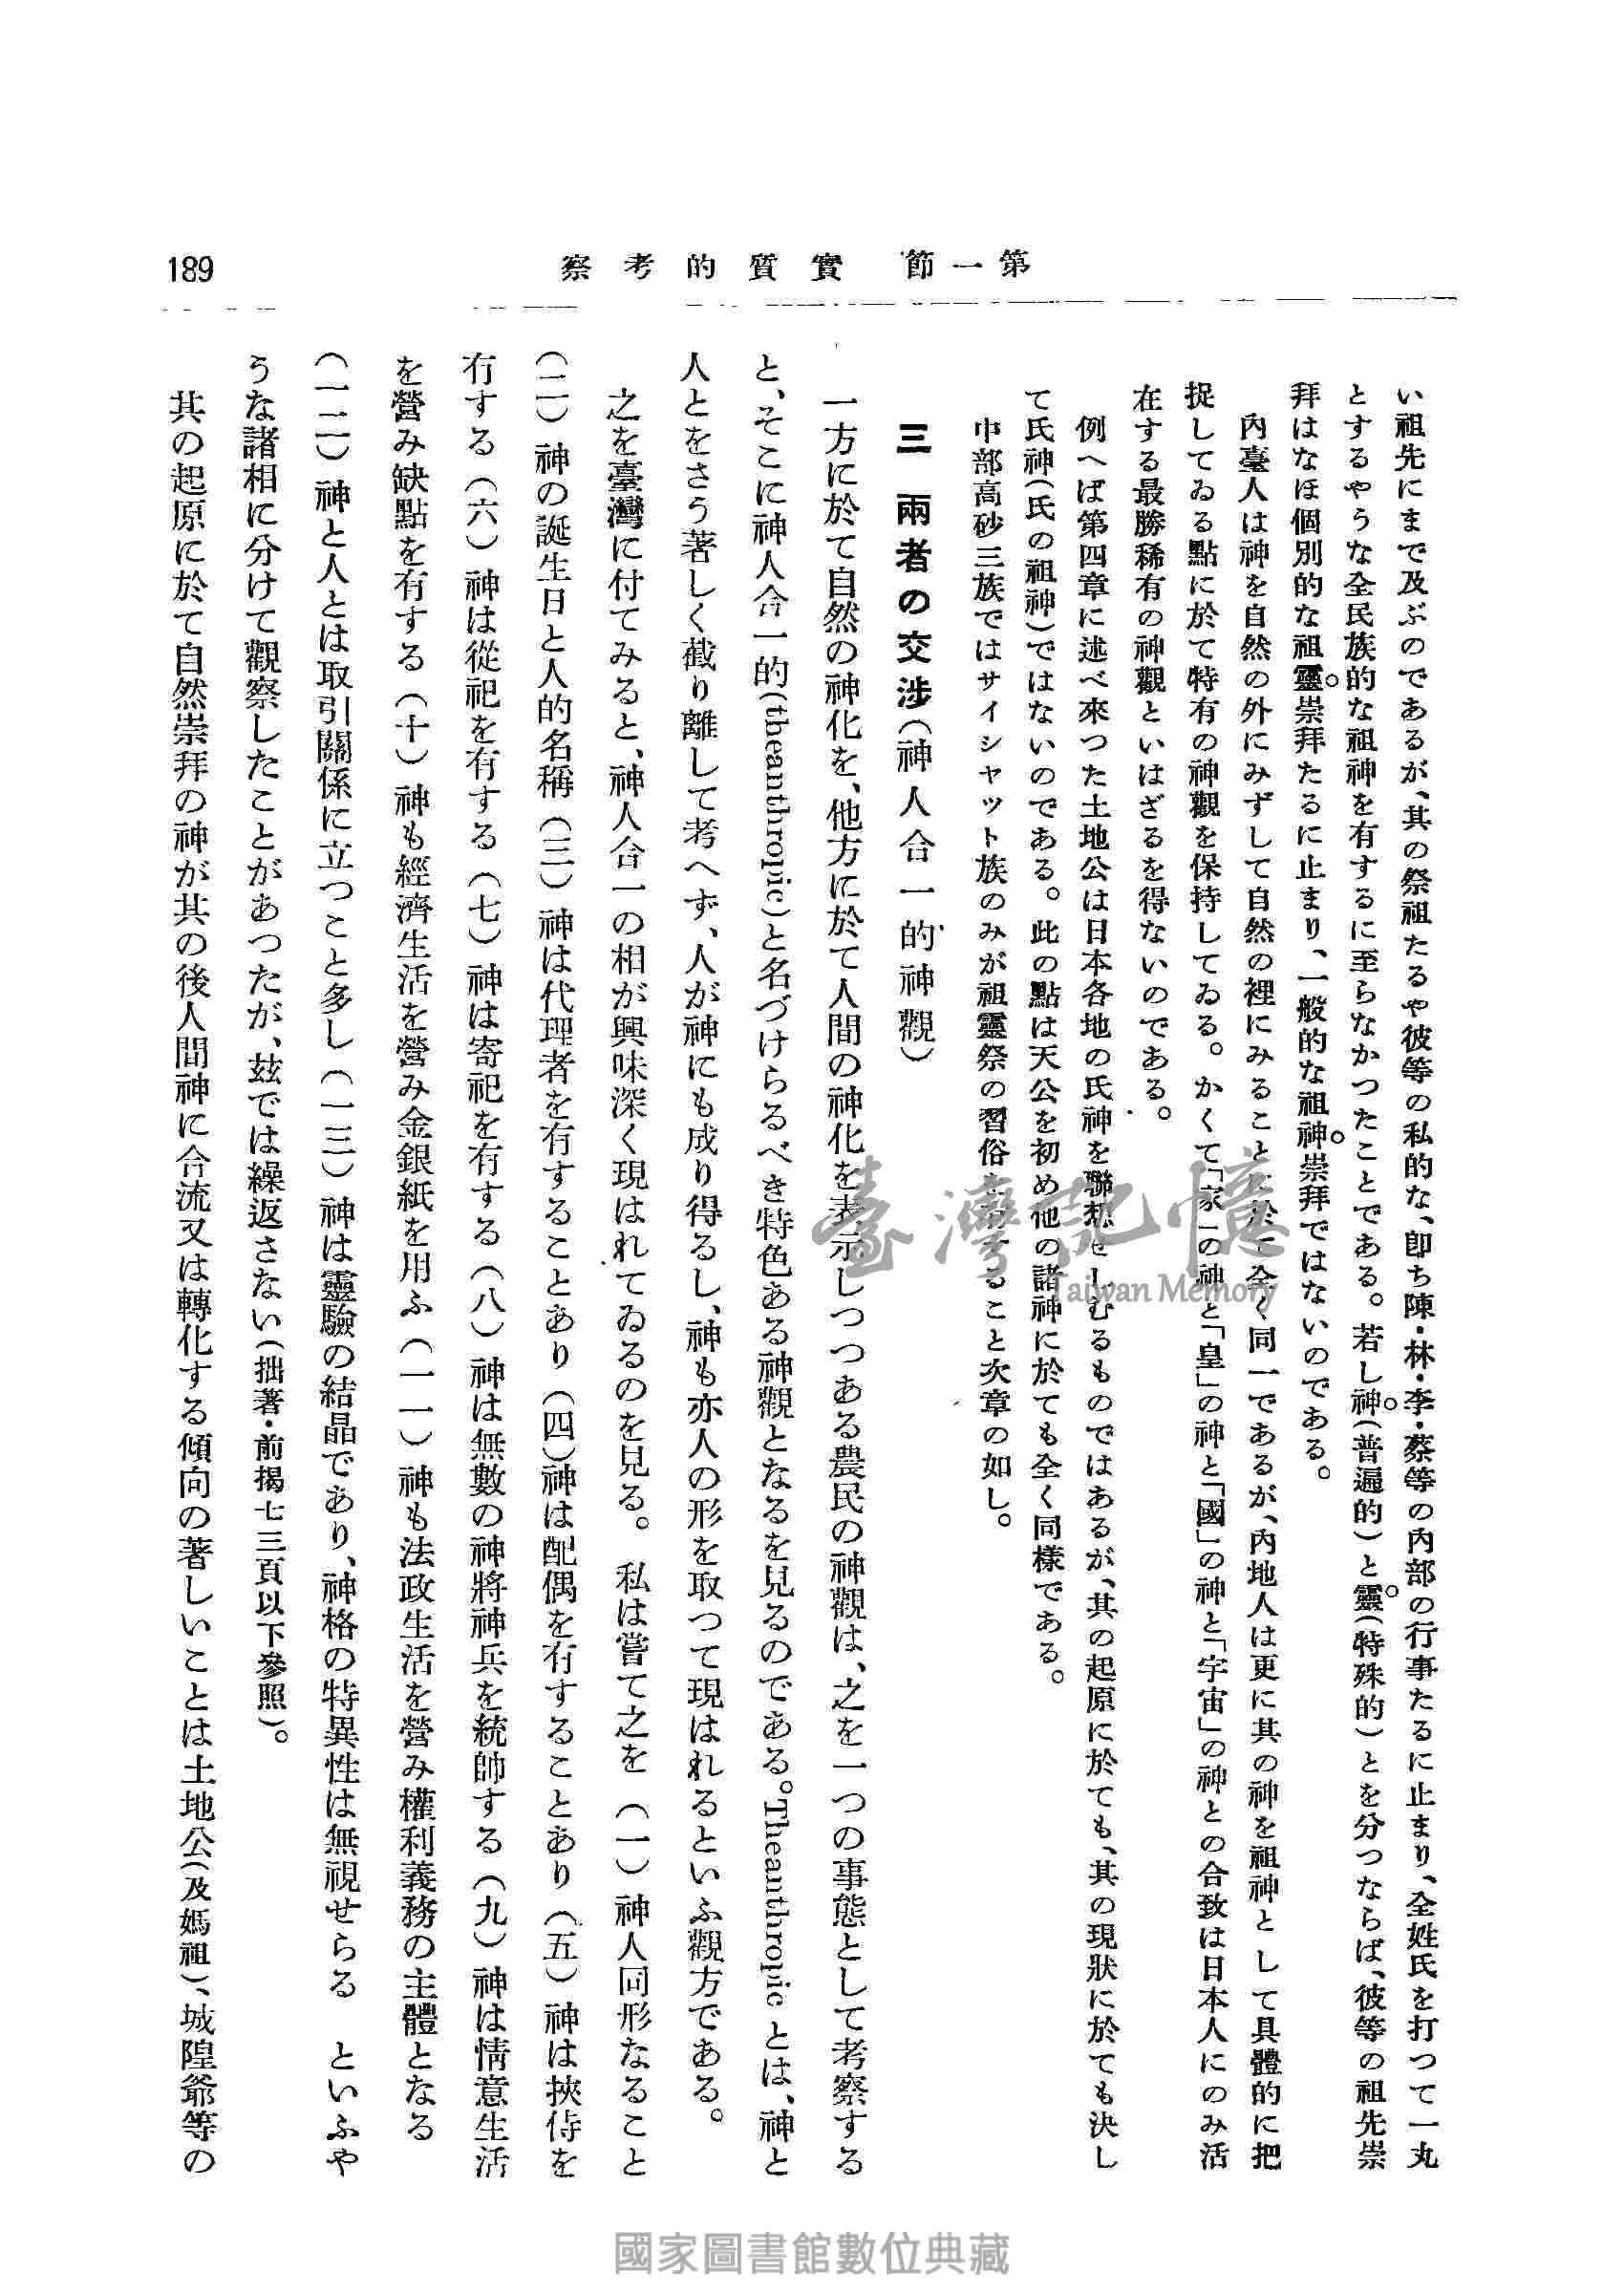 189
第一節 實質的考察
い祖先にまで及ぶのであるが、其の祭祖たるや彼等の私的な、卽ち陳・林・李・蔡等の內部の行事たるに止まり、全姓氏を打つて一丸
とするやうな全民族的な祖神を有するに至らなかつたことである。若し神(普遍的)と靈(特殊的)とを分つならば、彼等の祖先崇
拜はなほ個別的な祖靈崇拜たるに止まり、一般的な祖神崇拜ではないのである。
內臺人は神を自然の外にみずして自然の裡にみることに於て全く同一であるが、內地人は更に其の神を祖神として具體的に把
捉してゐる點に於て特有の神觀を保持してゐる。かくて「家」の神と「皇」の神と「國」の神と「宇宙」の神との合致は日本人にのみ活
在する最勝稀有の神觀といはざるを得ないのである。
例へば第四章に述べ來つた土地公は日本各地の氏神を聯想せしむるものではあるが、其の起原に於ても、其の現狀に於ても決し
て氏神(氏の祖神)ではないのである。此の點は天公を初め他の諸神に於ても全く同樣である。
中部高砂三族ではサイシャット族のみが祖靈祭の習俗を有すること次章の如し。
三 兩者の交涉(神人合一的神觀)
一方に於て自然の神化を、他方に於て人間の神化を表示しつつある農民の神觀は、之を一つの事態として考察する
と、そこに神人合一的(theanthropic)と名づけらるべき特色ある神觀となるを見るのである。Theanthropic とは、神と
人とをさう著しく截り離して考へず、人が神にも成り得るし、神も亦人の形を取つて現はれるといふ觀方である。
之を臺灣に付てみると、神人合一の相が興味深く現はれてゐるのを見る。私は嘗て之を (一) 神人同形なること
(二) 神の誕生日と人的名稱 (三) 神は代理者を有することあり (四)神は配偶を有することあり (五) 神は挾侍を
有する (六) 神は從祀を有する (七) 神は寄祀を有する (八) 神は無數の神將神兵を統帥する (九) 神は情意生活
を營み缺點を有する (十) 神も經濟生活を營み金銀紙を用ふ (一一) 神も法政生活を營み權利義務の主體となる
(一二) 神と人とは取引關係に立つこと多し (一三) 神は靈驗の結晶であり、神格の特異性は無視せらる といふや
うな諸相に分けて觀察したことがあつたが、玆では繰返さない(拙著・前揭七三頁以下參照)。
其の起原に於て自然崇拜の神が其の後人間神に合流又は轉化する傾向の著しいことは土地公(及媽祖)、城隍爺等の
臺灣記憶
Taiwan Memory
國家圖書館數位典藏